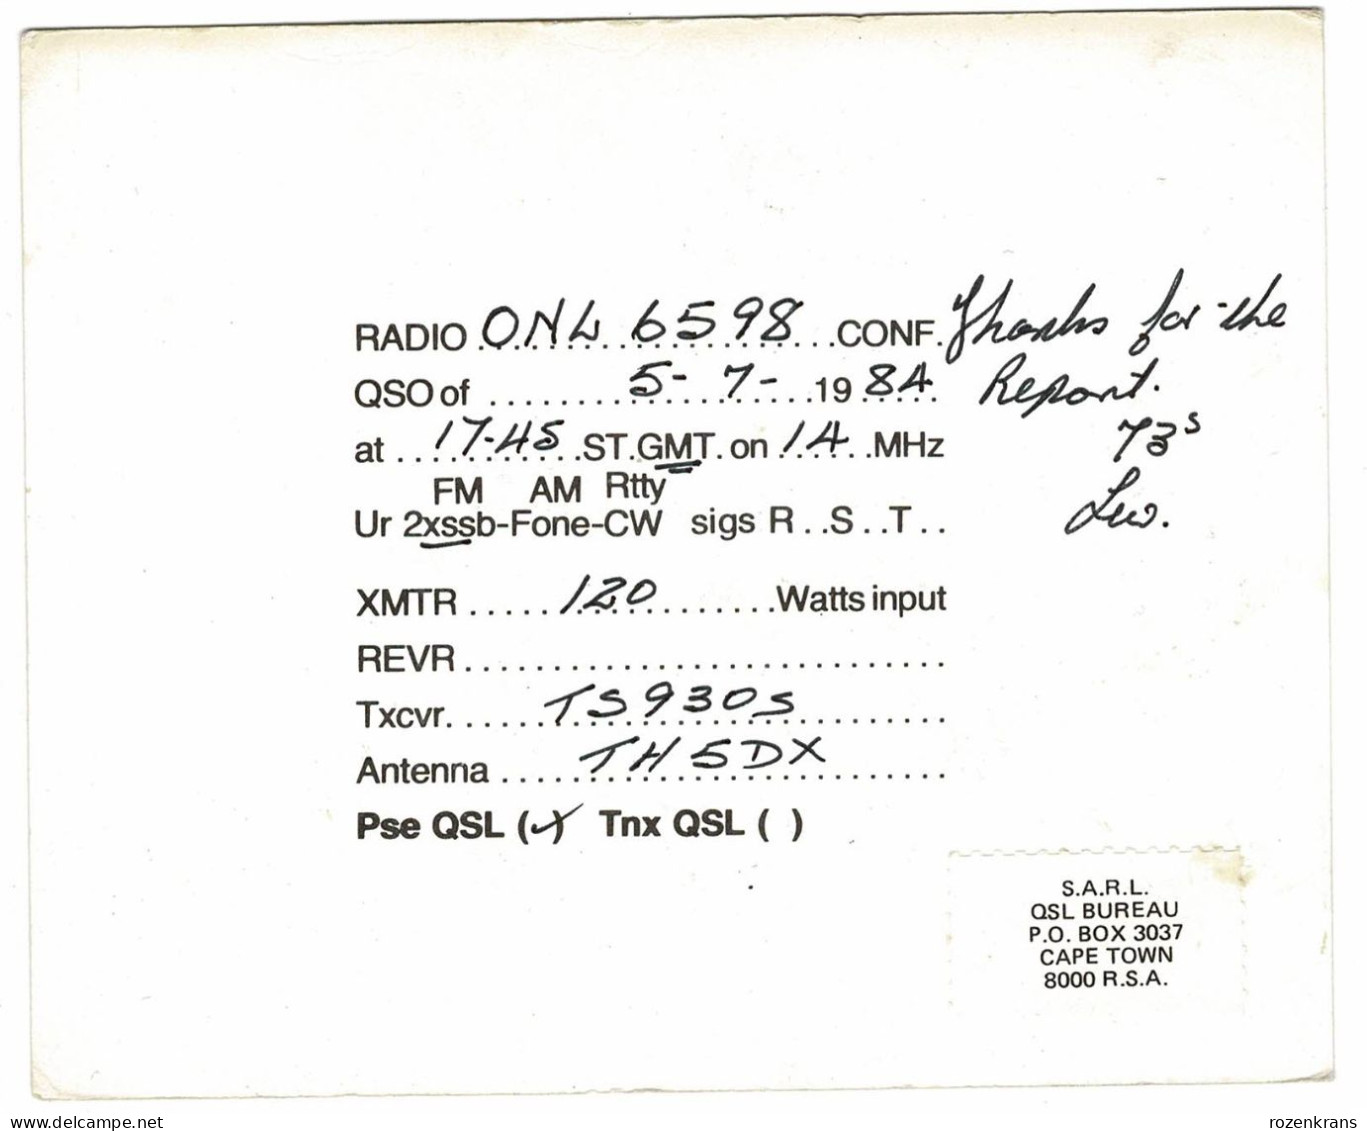 RADIO ONL 6598 CONF. Thanks for the
QSO of 5-7-1984 Report.
at 17-45 ST.GMT. on 14 MHz 73s
FM AM Rtty
Ur 2xssb-Fone-CW sigs R..S..T..
XMTR 120 Watts input
REVR
Txcvr. TS930S
Antenna TH5DX
Pse QSL (✓) Tnx QSL ( )
S.A.R.L.
QSL BUREAU
P.O. BOX 3037
CAPE TOWN
8000 R.S.A.
delcampe.net
rozenkrans